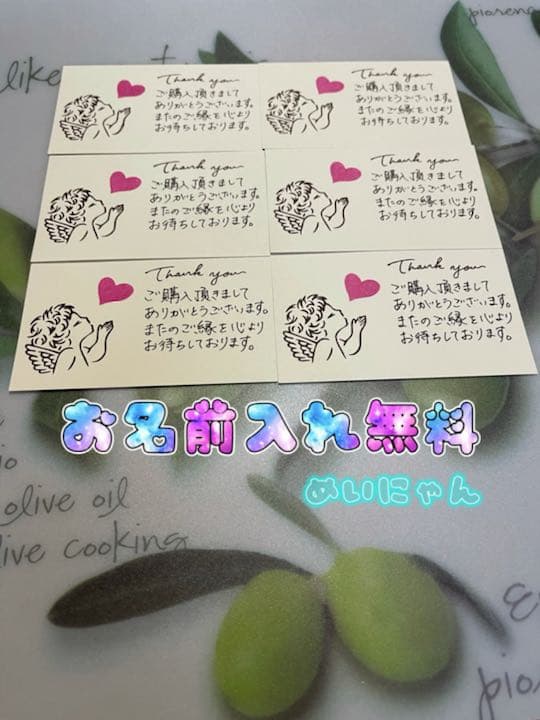 like
piorena
Thank you
ご購入頂きまして
ありがとうございます。
またのご縁を心より
お待ちしております。
Thank you
ご購入頂きまして
ありがとうございます。
またのご縁を心より
お待ちしております。
Thank you
ご購入頂きまして
ありがとうございます。
またのご縁を心より
お待ちしております。
Thank you
ご購入頂きまして
ありがとうございます。
またのご縁を心より
お待ちしております。
Thank you
ご購入頂きまして
ありがとうございます。
またのご縁を心より
お待ちしております。
Thank you
ご購入頂きまして
ありがとうございます。
またのご縁を心より
お待ちしております。
お名前入れ無料
めいにゃん
olive oil
live cooking